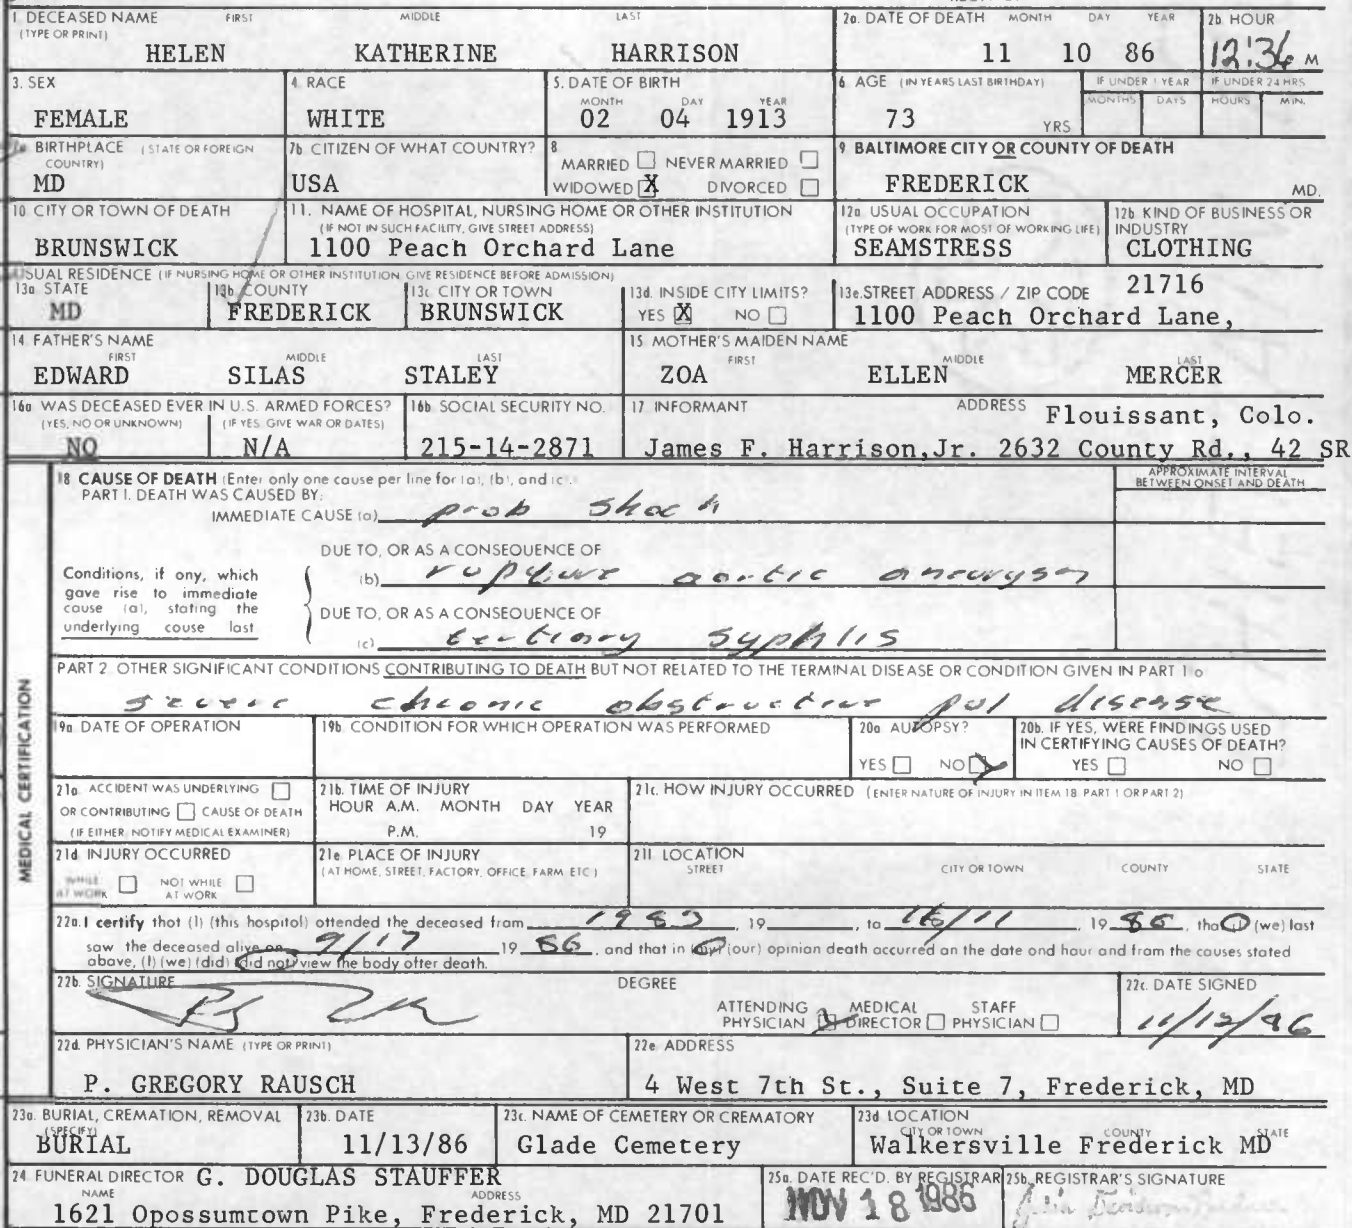 1 DECEASED NAME FIRST MIDDLE LAST
(TYPE OR PRINT)
HELEN KATHERINE HARRISON
2a. DATE OF DEATH MONTH DAY YEAR
11 10 86
2b HOUR
12:36 M
3. SEX
FEMALE
4 RACE
WHITE
5. DATE OF BIRTH
MONTH DAY YEAR
02 04 1913
6 AGE (IN YEARS LAST BIRTHDAY)
73 YRS
IF UNDER 1 YEAR
MONTHS DAYS
IF UNDER 24 HRS
HOURS MIN.
7a BIRTHPLACE (STATE OR FOREIGN
COUNTRY)
MD
7b CITIZEN OF WHAT COUNTRY?
USA
8
MARRIED NEVER MARRIED
WIDOWED X DIVORCED
9 BALTIMORE CITY OR COUNTY OF DEATH
FREDERICK MD.
10 CITY OR TOWN OF DEATH
BRUNSWICK
11. NAME OF HOSPITAL, NURSING HOME OR OTHER INSTITUTION
(IF NOT IN SUCH FACILITY, GIVE STREET ADDRESS)
1100 Peach Orchard Lane
12a USUAL OCCUPATION
(TYPE OF WORK FOR MOST OF WORKING LIFE)
SEAMSTRESS
12b KIND OF BUSINESS OR
INDUSTRY
CLOTHING
USUAL RESIDENCE (IF NURSING HOME OR OTHER INSTITUTION GIVE RESIDENCE BEFORE ADMISSION)
13a STATE
MD
13b COUNTY
FREDERICK
13c CITY OR TOWN
BRUNSWICK
13d. INSIDE CITY LIMITS?
YES X NO
13e. STREET ADDRESS / ZIP CODE 21716
1100 Peach Orchard Lane,
14 FATHER'S NAME
FIRST MIDDLE LAST
EDWARD SILAS STALEY
15 MOTHER'S MAIDEN NAME
FIRST MIDDLE LAST
ZOA ELLEN MERCER
16a WAS DECEASED EVER IN U.S. ARMED FORCES?
(YES, NO OR UNKNOWN) (IF YES, GIVE WAR OR DATES)
NO N/A
16b SOCIAL SECURITY NO.
215-14-2871
17 INFORMANT ADDRESS Flouissant, Colo.
James F. Harrison,Jr. 2632 County Rd., 42 SR
18 CAUSE OF DEATH (Enter only one cause per line for (a), (b), and (c).
APPROXIMATE INTERVAL
BETWEEN ONSET AND DEATH
PART I. DEATH WAS CAUSED BY:
IMMEDIATE CAUSE (a) prob shock
DUE TO, OR AS A CONSEQUENCE OF
Conditions, if any, which
gave rise to immediate
cause (a), stating the
underlying couse last
(b) rupture aortic aneurysm
DUE TO, OR AS A CONSEQUENCE OF
(c) tertiary syphlis
PART 2 OTHER SIGNIFICANT CONDITIONS CONTRIBUTING TO DEATH BUT NOT RELATED TO THE TERMINAL DISEASE OR CONDITION GIVEN IN PART 1 a
severe chronic obstructive pul disease
MEDICAL CERTIFICATION
19a DATE OF OPERATION
19b. CONDITION FOR WHICH OPERATION WAS PERFORMED
20a AUTOPSY?
YES NO
20b. IF YES, WERE FINDINGS USED
IN CERTIFYING CAUSES OF DEATH?
YES NO
21a. ACCIDENT WAS UNDERLYING
OR CONTRIBUTING CAUSE OF DEATH
(IF EITHER, NOTIFY MEDICAL EXAMINER)
21b. TIME OF INJURY
HOUR A.M. MONTH DAY YEAR
P.M. 19
21c. HOW INJURY OCCURRED (ENTER NATURE OF INJURY IN ITEM 18 PART 1 OR PART 2)
21d INJURY OCCURRED
WHILE AT WORK NOT WHILE AT WORK
21e PLACE OF INJURY
(AT HOME, STREET, FACTORY, OFFICE FARM ETC)
21f LOCATION
STREET CITY OR TOWN COUNTY STATE
22a. I certify that (I) (this hospital) attended the deceased from 1983, 19, to 11, 1986, that (I) (we) last
saw the deceased alive on 9/17 1986, and that in (my) (our) opinion death occurred on the date and hour and from the causes stated
above, (I) (we) (did) (did not) view the body after death.
22b. SIGNATURE DEGREE
ATTENDING PHYSICIAN MEDICAL DIRECTOR STAFF PHYSICIAN
22c. DATE SIGNED
11/12/86
22d. PHYSICIAN'S NAME (TYPE OR PRINT)
P. GREGORY RAUSCH
22e ADDRESS
4 West 7th St., Suite 7, Frederick, MD
23a. BURIAL, CREMATION, REMOVAL
(SPECIFY)
BURIAL
23b. DATE
11/13/86
23c. NAME OF CEMETERY OR CREMATORY
Glade Cemetery
23d LOCATION
CITY OR TOWN COUNTY STATE
Walkersville Frederick MD
24 FUNERAL DIRECTOR G. DOUGLAS STAUFFER
NAME ADDRESS
1621 Opossumtown Pike, Frederick, MD 21701
25a. DATE REC'D. BY REGISTRAR
NOV 18 1986
25b. REGISTRAR'S SIGNATURE